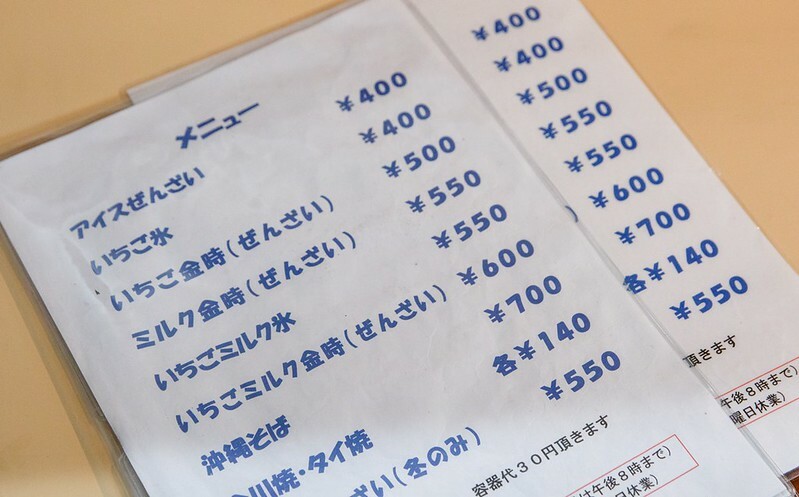 メニュー
アイスぜんざい ¥400
いちご氷 ¥400
いちご金時(ぜんざい) ¥500
ミルク金時(ぜんざい) ¥550
いちごミルク氷 ¥550
いちごミルク金時(ぜんざい) ¥600
沖縄そば ¥700
川焼・タイ焼 各¥140
ざい(冬のみ) ¥550
容器代30円頂きます
は午後8時まで)
曜日休業)
¥400
¥400
¥500
¥550
¥550
¥600
¥700
各¥140
¥550
頂きます
午後8時まで)
曜日休業)